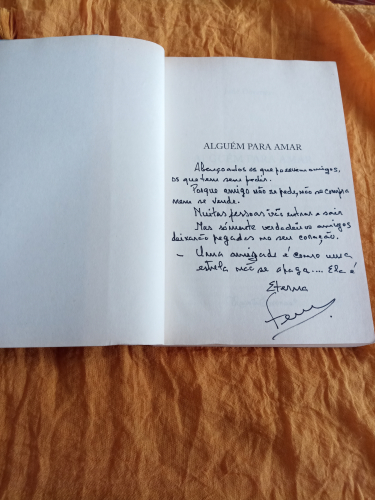 ALGUÉM PARA AMAR
Abençoados os que possuem amigos,
os que tem sem pedir.
Porque amigo não se pede, não se compra
nem se vende.
Muitas pessoas irão entrar e sair
Mas somente verdadeiros amigos
deixarão pegadas no seu coração.
– Uma amizade é como uma
estrela não se apaga.... Ela é
Eterna